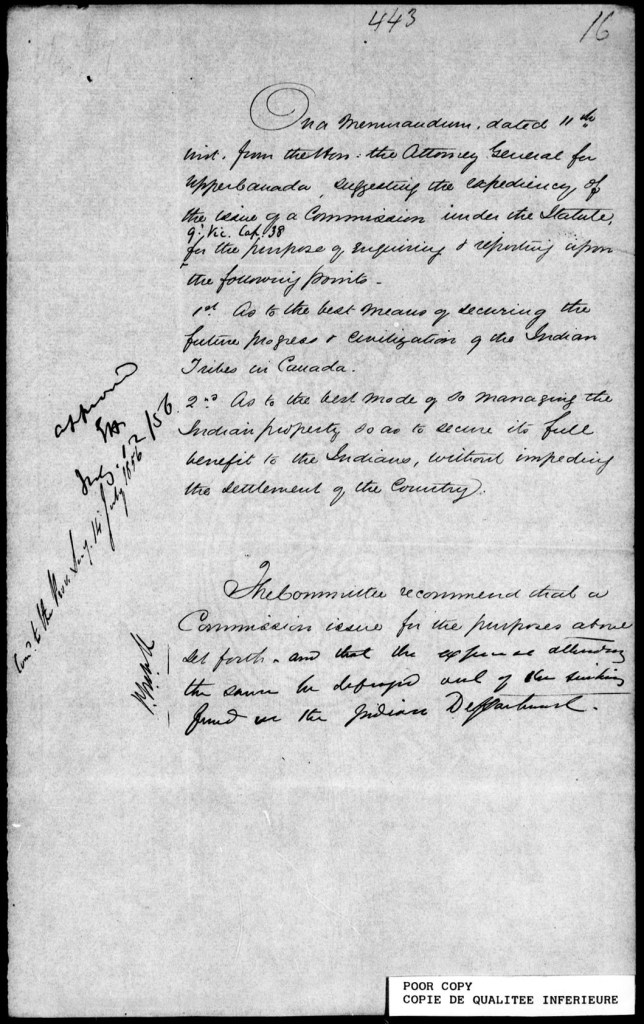 443
16
On a Memorandum, dated 11th
inst. from the Hon: the Attorney General for
Upper Canada, suggesting the expediency of
the issue of a Commission under the Statute,
9: Vic. Cap. 38
for the purpose of enquiring & reporting upon
the following points -
1st As to the best means of securing the
future progress & civilization of the Indian
Tribes in Canada.
2nd As to the best mode of so managing the
Indian property so as to secure its full
benefit to the Indians, without impeding
the settlement of the Country.
approved
/56
14 July 1856
The Committee recommend that a
Commission issue for the purposes above
set forth - and that the expense attending
the same be defrayed out of the sinking
fund in the Indian Department.
POOR COPY
COPIE DE QUALITEE INFERIEURE